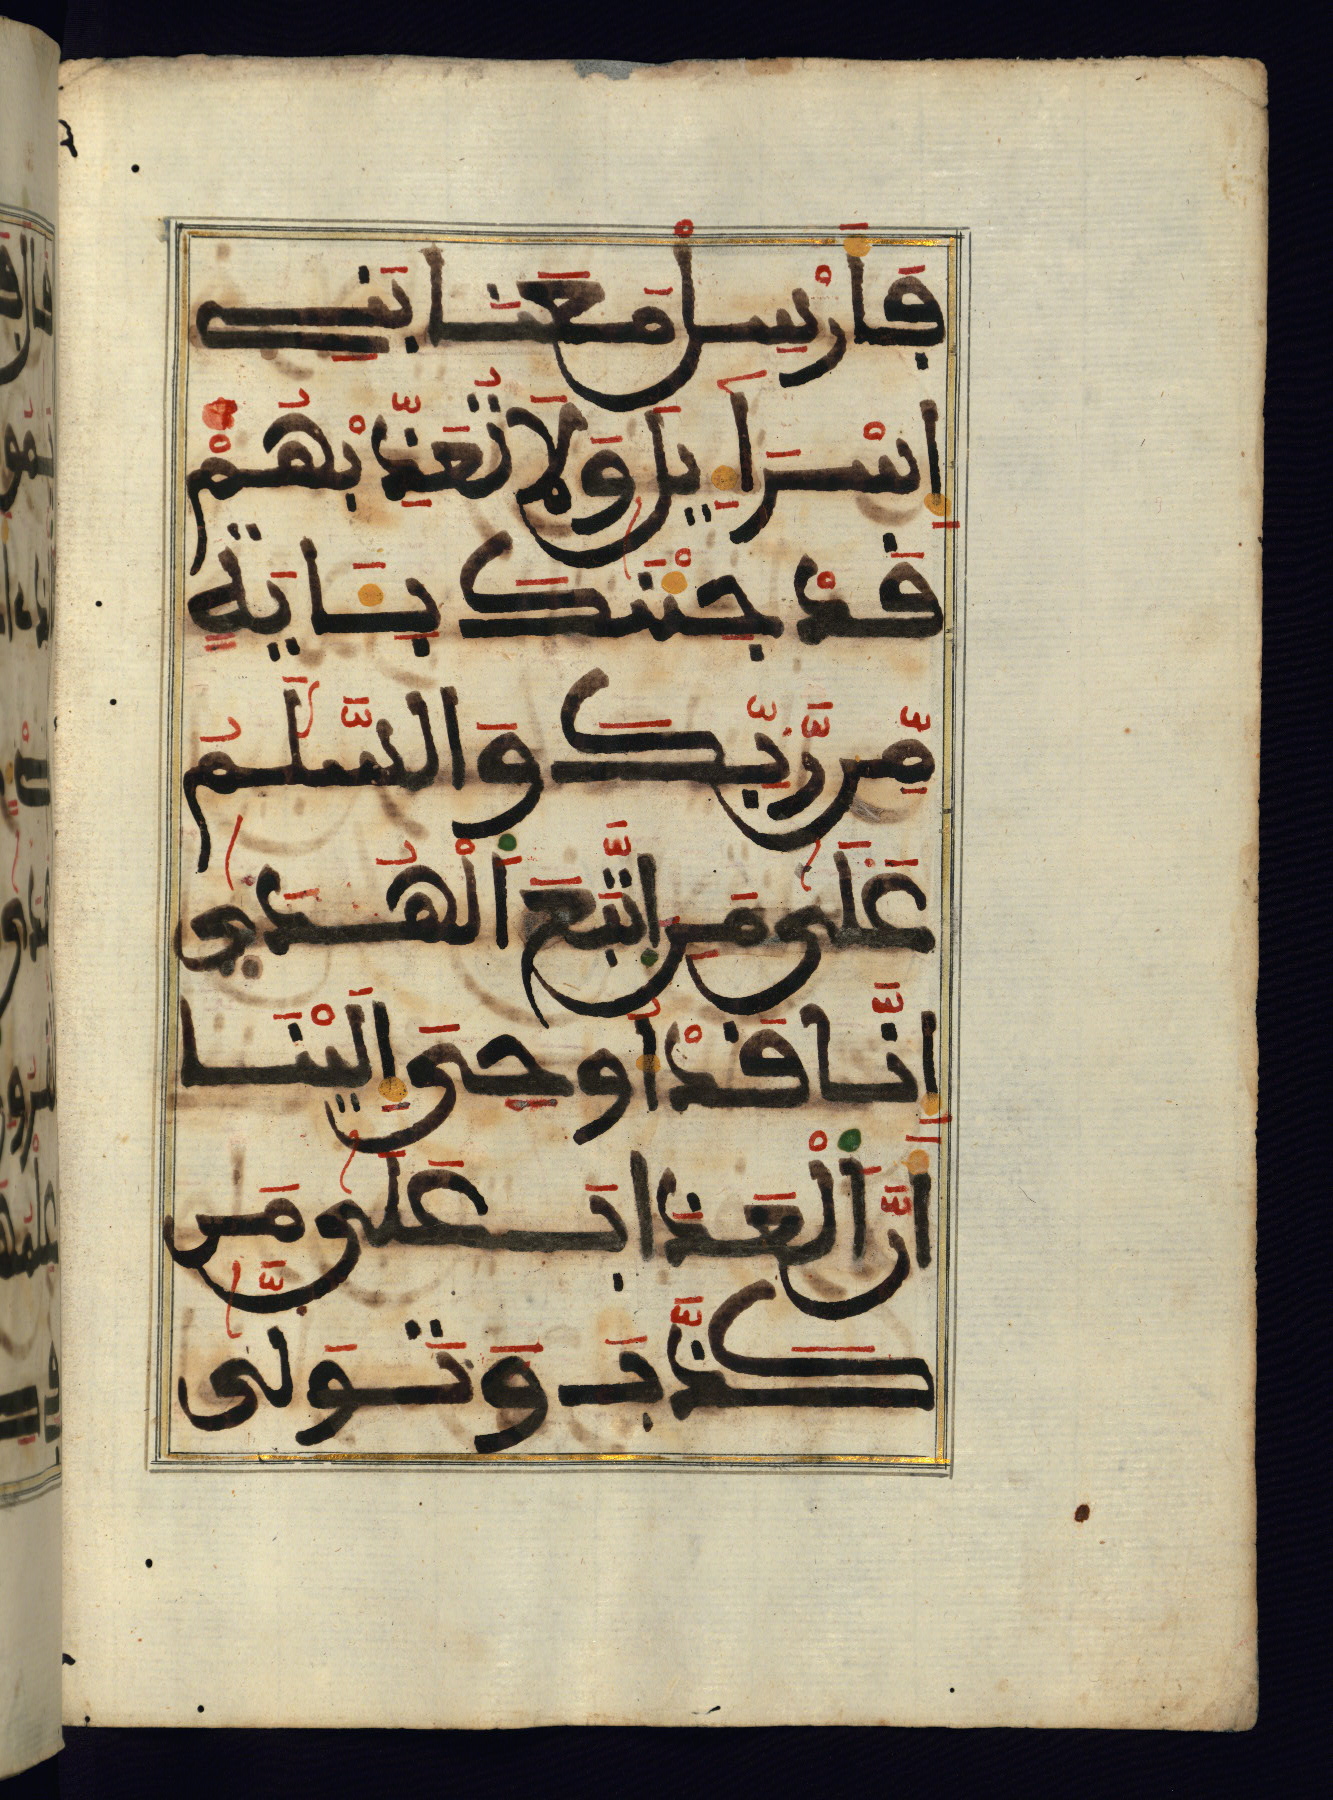 فَأَرْسِلْ مَعَنَا بَنِے
إِسْرَآءِيلَ وَلَا تُعَذِّبْهُمْ
قَدْ جِئْنَٰكَ بِـَٔايَةٍ
مِّن رَّبِّكَ وَالسَّلَٰمُ
عَلَىٰ مَنِ اتَّبَعَ اَ۬لْهُدَىٰٓ
إِنَّا قَدُ ا۟وحِيَ إِلَيْنَا
أَنَّ اَ۬لْعَذَابَ عَلَىٰ مَن
كَذَّبَ وَتَوَلَّىٰ